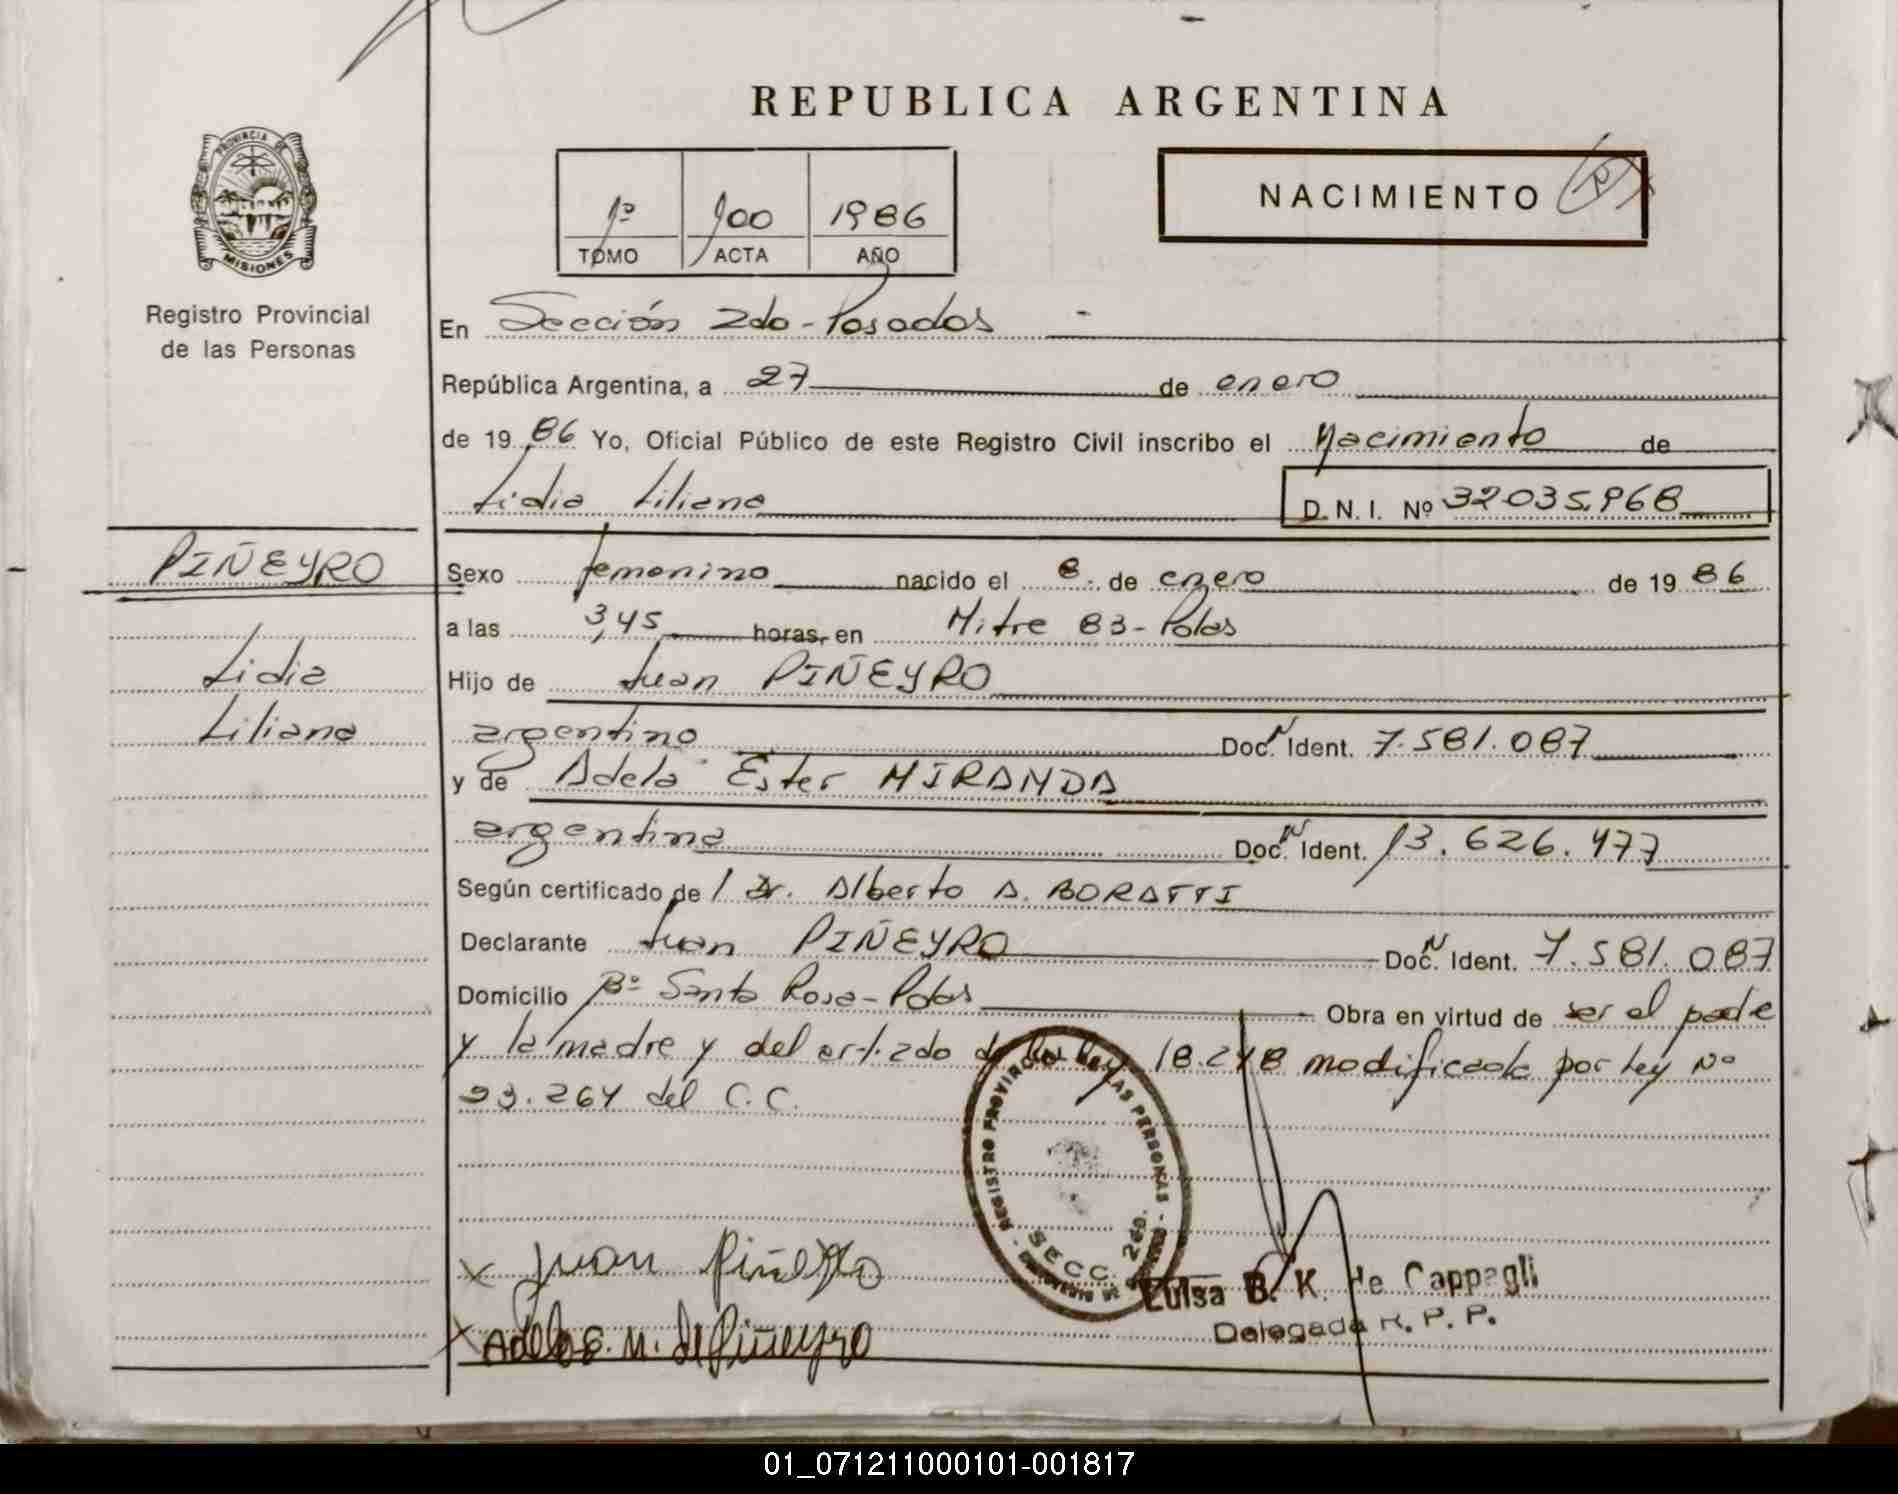 REPUBLICA ARGENTINA
PROVINCIA DE
MISIONES
Registro Provincial
de las Personas
1º 100 1986
TOMO ACTA AÑO
NACIMIENTO
En Sección 2do-Posadas
República Argentina, a 27 de enero
de 1986 Yo, Oficial Público de este Registro Civil inscribo el Nacimiento de
Lidia Liliana D.N.I. Nº 32035.968
PIÑEYRO
Lidia
Liliana
Sexo femenino nacido el 8 de enero de 1986
a las 3,45 horas, en Mitre 83-Pdas
Hijo de Juan PIÑEYRO
argentino Doc. N Ident. 7.581.087
y de Adela Ester MIRANDA
argentina Doc. N Ident. 13.626.477
Según certificado de / Dr. Alberto A. BORATTI
Declarante Juan PIÑEYRO Doc. N Ident. 7.581.087
Domicilio Bº Santa Rosa-Pdas Obra en virtud de ser el padre
y la madre y del art. 2do de la ley 18.248 modificada por ley Nº
23.264 del C.C.
REGISTRO PROVINCIAL DE LAS PERSONAS
SECC. 2da.
x Juan Piñeyro
x Adela E. M. de Piñeyro
Luisa B. K. de Cappagli
Delegada R. P. P.
01_071211000101-001817